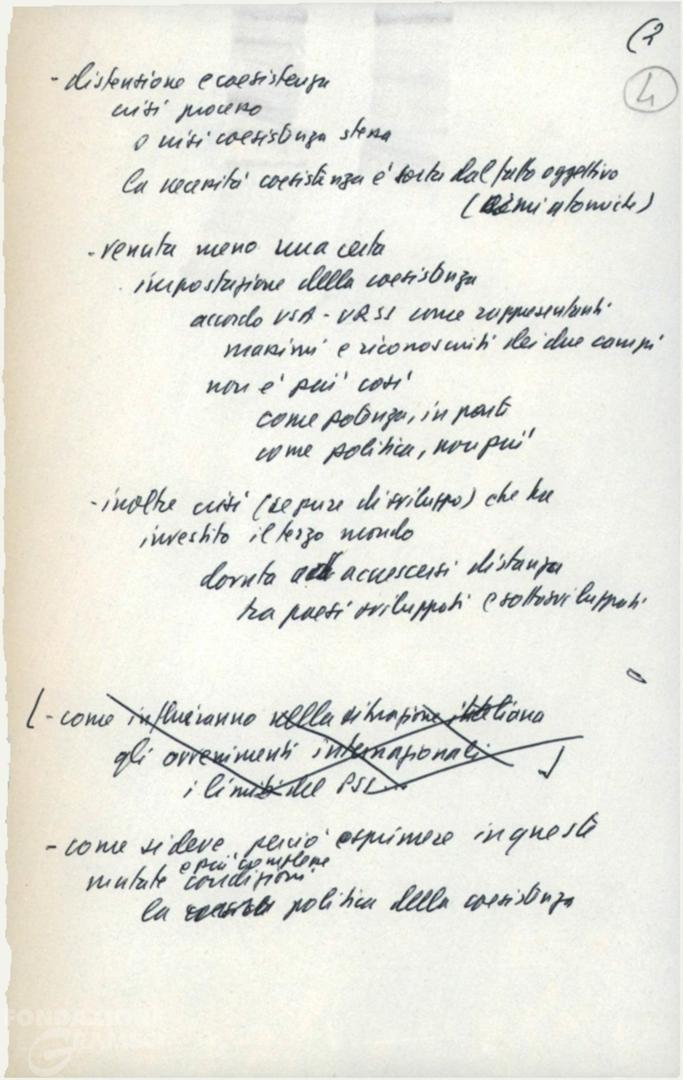 (2
4
- distensione e coesistenza
crisi processo
o crisi coesistenza stessa
la necessità coesistenza è sorta dal fatto oggettivo
(armi atomiche)
- venuta meno una certa
impostazione della coesistenza
accordo USA - URSS come rappresentanti
massimi e riconosciuti dei due campi
non è più così
come potenza, in parte
come politica, non più
- inoltre crisi (se pure di sviluppo) che ha
investito il terzo mondo
dovuta ad accrescersi distanza
tra paesi sviluppati e sottosviluppati
[- come influiranno sulla situazione italiana
gli avvenimenti internazionali
i limiti del PSI...
- come si deve perciò esprimere in queste
e più complesse
mutate condizioni
la politica della coesistenza
FONDAZIONE
GRAMSCI